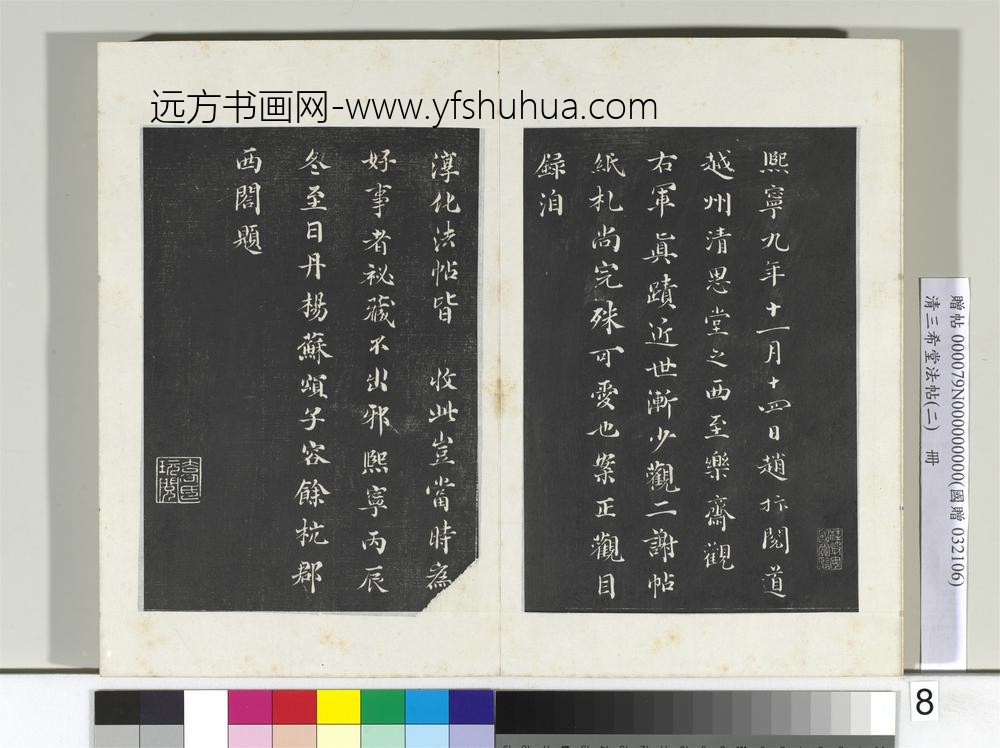 远方书画网-www.yfshuhua.com
熙寧九年十一月十四日趙抃閱道
越州清思堂之西至樂齋觀
右軍真蹟近世漸少觀二謝帖
紙札尚完殊可愛也案正觀目
録洎
淳化法帖皆 收此豈當時為
好事者祕藏不出邪熙寧丙辰
冬至日丹楊蘇頌子容餘杭郡
西閣題
贈帖 000079N000000000(國贈 032106)
清三希堂法帖(二) 冊
8